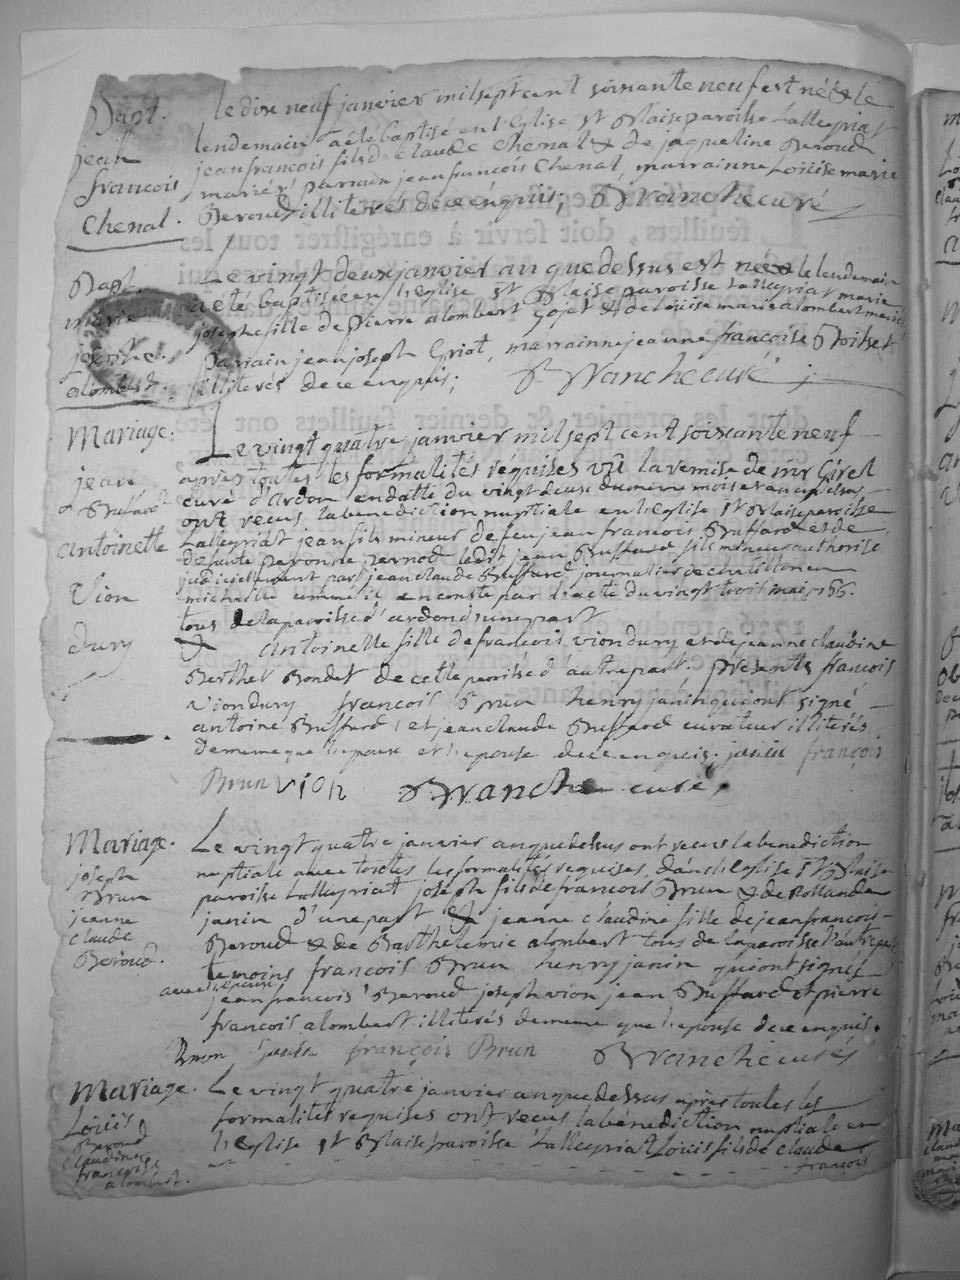 Bapt.
jean
francois
Chenal.
Le dix neuf janvier mil sept cent soixante neuf est né & le
lendemain a été baptisé en l'Eglise st Blaise paroisse Lalleyriat
jean francois fils de Claude Chenal & de jaqueline Beroud
mariés parrain jean francois Chenal, marrainne Loüise marie
Beroud illiterés de ce enquis; Blanche curé
Bapt.
marie
josephe
alombert.
Le vingt deux janvier an que dessus est née & le lendemain
a été baptisée en l'Eglise st Blaise paroisse Lalleyriat marie
josephe fille de Pierre alombert Gojet & de Loüise marie alombert mariés
Parrain jean joseph Griot, marrainne jeanne francoise Poitset
illiterés de ce enquis; Blanche curé
Mariage.
jean
Buffard
antoinette
Vion
dury
Le vingt quatre janvier mil sept cent soixante neuf
après toutes les formalités requises vû la remise de mr Girel
curé d'ardon en datte du vingt deux du meme mois et an que dessus
ont recus la benediction nuptiale en l'eglise st Blaise paroisse
Lalleyriat jean fils mineur de feu jean francois Buffard et de
defunte Peronne Pernod ledit jean Buffard fils mineur authorisé
judiciellement par jean claude Buffard journalier de chatillon en
michaille comme il en conste par l'acte du vingt trois mai
tous de la paroisse d'ardon d'une part
& antoinette fille de francois viondury et de jeanne claudine
Berthet Bondet de cette paroisse d'autre part. Presents francois
Viondury francois Brun henry janin qui ont signé
antoine Buffard, et jean claude Buffard curateur illiterés
de meme que l'epoux et l'epouse de ce enquis. janin françois
Brun vion Blanche curé,
Mariage.
joseph
Brun
jeanne
claude
Beroud.
Le vingt quatre janvier an que dessus ont recus la benediction
nuptiale avec toutes les formalités requises, dans l'Eglise st Blaise
paroisse Lalleyriat joseph fils de francois Brun & de Rollande
janin d'une part & jeanne claudine fille de jean francois
Beroud & de Barthelemie alombert tous de la paroisse d'autre part
temoins francois Brun henry janin qui ont signés
avec l'epoux jean francois Beroud joseph vion jean Buffard et pierre
francois alombert illiterés de meme que l'epouse de ce enquis.
Brun janin françois Brun Blanche curés
Mariage.
Loüis
Beroud
claudine
francoise
alombert.
Le vingt quatre janvier an que dessus après toutes les
formalités requises ont recus la bénédiction nuptiale en
l'Eglise st Blaise paroisse Lalleyriat Loüis fils de claude
françois